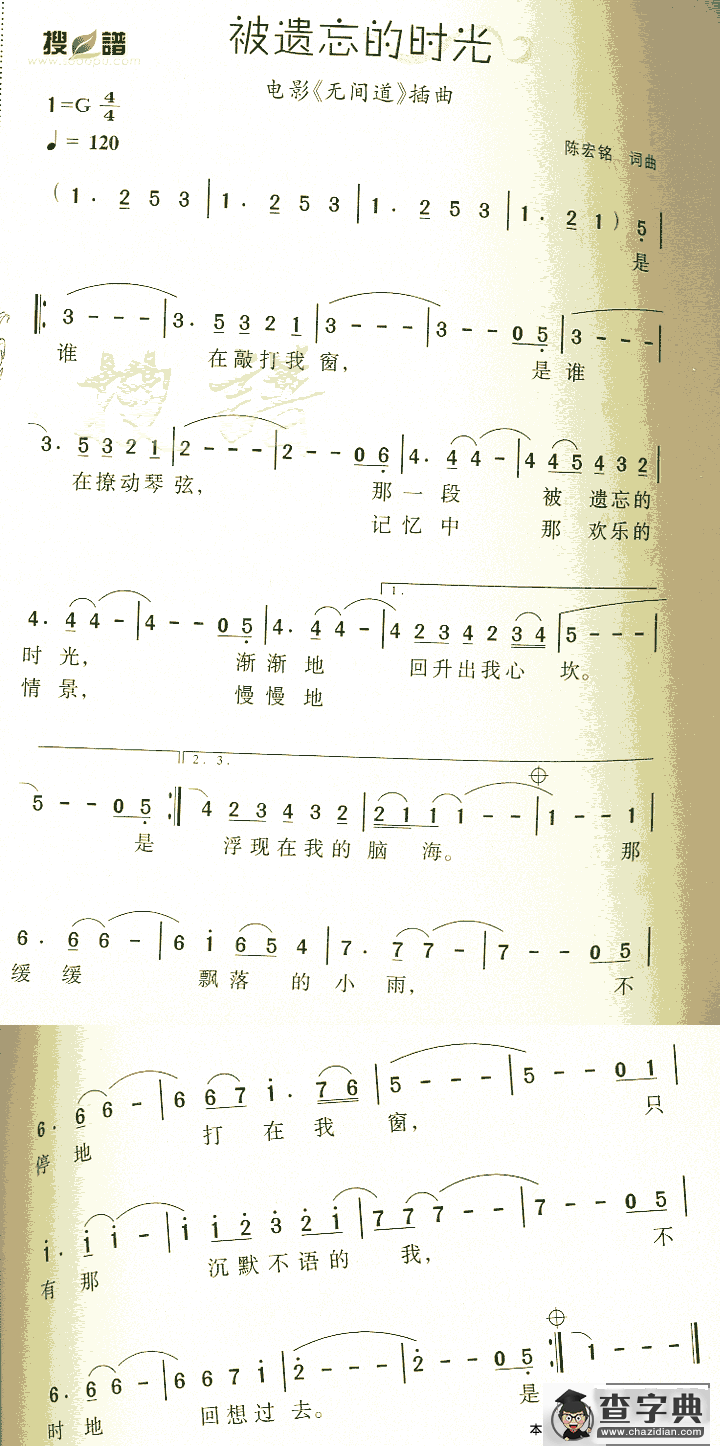 搜 譜
www.sooopu.com
被遗忘的时光
电影《无间道》插曲
1=G 4/4
♩= 120
陈宏铭 词曲
( 1 · 2 5 3 | 1 · 2 5 3 | 1 · 2 5 3 | 1 · 2 1 ) 5 |
是
‖: 3 - - - | 3 · 5 3 2 1 | 3 - - - | 3 - - 0 5 | 3 - - - |
谁 在敲打我窗， 是谁
3 · 5 3 2 1 | 2 - - - | 2 - - 0 6 | 4 · 4 4 - | 4 4 5 4 3 2 |
在撩动琴弦， 那一段 被遗忘的
记忆中 那欢乐的
1.
4 · 4 4 - | 4 - - 0 5 | 4 · 4 4 - | 4 2 3 4 2 3 4 | 5 - - - |
时光， 渐渐地 回升出我心坎。
情景， 慢慢地
2. 3.
5 - - 0 5 :‖ 4 2 3 4 3 2 | 2 1 1 1 - | 1 - - 1 |
是 浮现在我的脑海。 那
6 · 6 6 - | 6 i 6 5 4 | 7 · 7 7 - | 7 - - 0 5 |
缓缓 飘落的小雨， 不
6 · 6 6 - | 6 6 7 i · 7 6 | 5 - - - | 5 - - 0 1 |
停地 打在我窗， 只
i · i i - | i i 2 3 2 i | 7 7 7 - | 7 - - 0 5 |
有那 沉默不语的我， 不
6 · 6 6 - | 6 6 7 i | 2 - - - | 2 - - 0 5 :‖ 1 - - - ‖
时地 回想过去。 是
本
查字典
www.chazidian.com